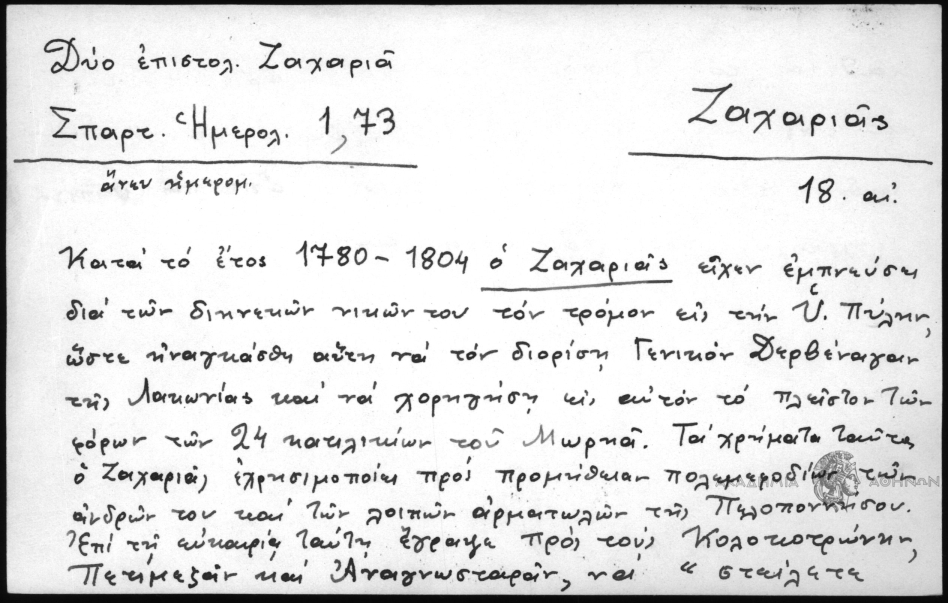 Δύο ἐπιστολ. Ζαχαριᾶ
Σπαρτ. Ἡμερολ. 1,73
ἄνευ ἡμερομ.
Ζαχαριᾶς
18. αἰ.
Κατά τό ἔτος 1780-1804 ὁ Ζαχαριᾶς εἶχεν ἐμπνεύσει
διά τῶν διηνεκῶν νικῶν του τόν τρόμον εἰς τήν Ὑ. Πύλην,
ὥστε ἠναγκάσθη αὕτη νά τόν διορίσῃ Γενικόν Δερβέναγαν
τῆς Λακωνίας καί νά χορηγήσῃ εἰς αὐτόν τό πλεῖστον τῶν
φόρων τῶν 24 κατιλικίων τοῦ Μωρηᾶ. Τά χρήματα ταῦτα
ὁ Ζαχαριᾶς ἐχρησιμοποίει πρός προμήθειαν πολεμεφοδίων τῶν
ἀνδρῶν του καί τῶν λοιπῶν ἁρματωλῶν τῆς Πελοποννήσου.
Ἐπί τῇ εὐκαιρίᾳ ταύτῃ ἔγραψε πρός τούς Κολοκοτρώνην,
Πετιμεζᾶν καί Ἀναγνωσταρᾶν, νά " στείλετε
ΑΚΑΔΗΜΙΑ ΑΘΗΝΩΝ